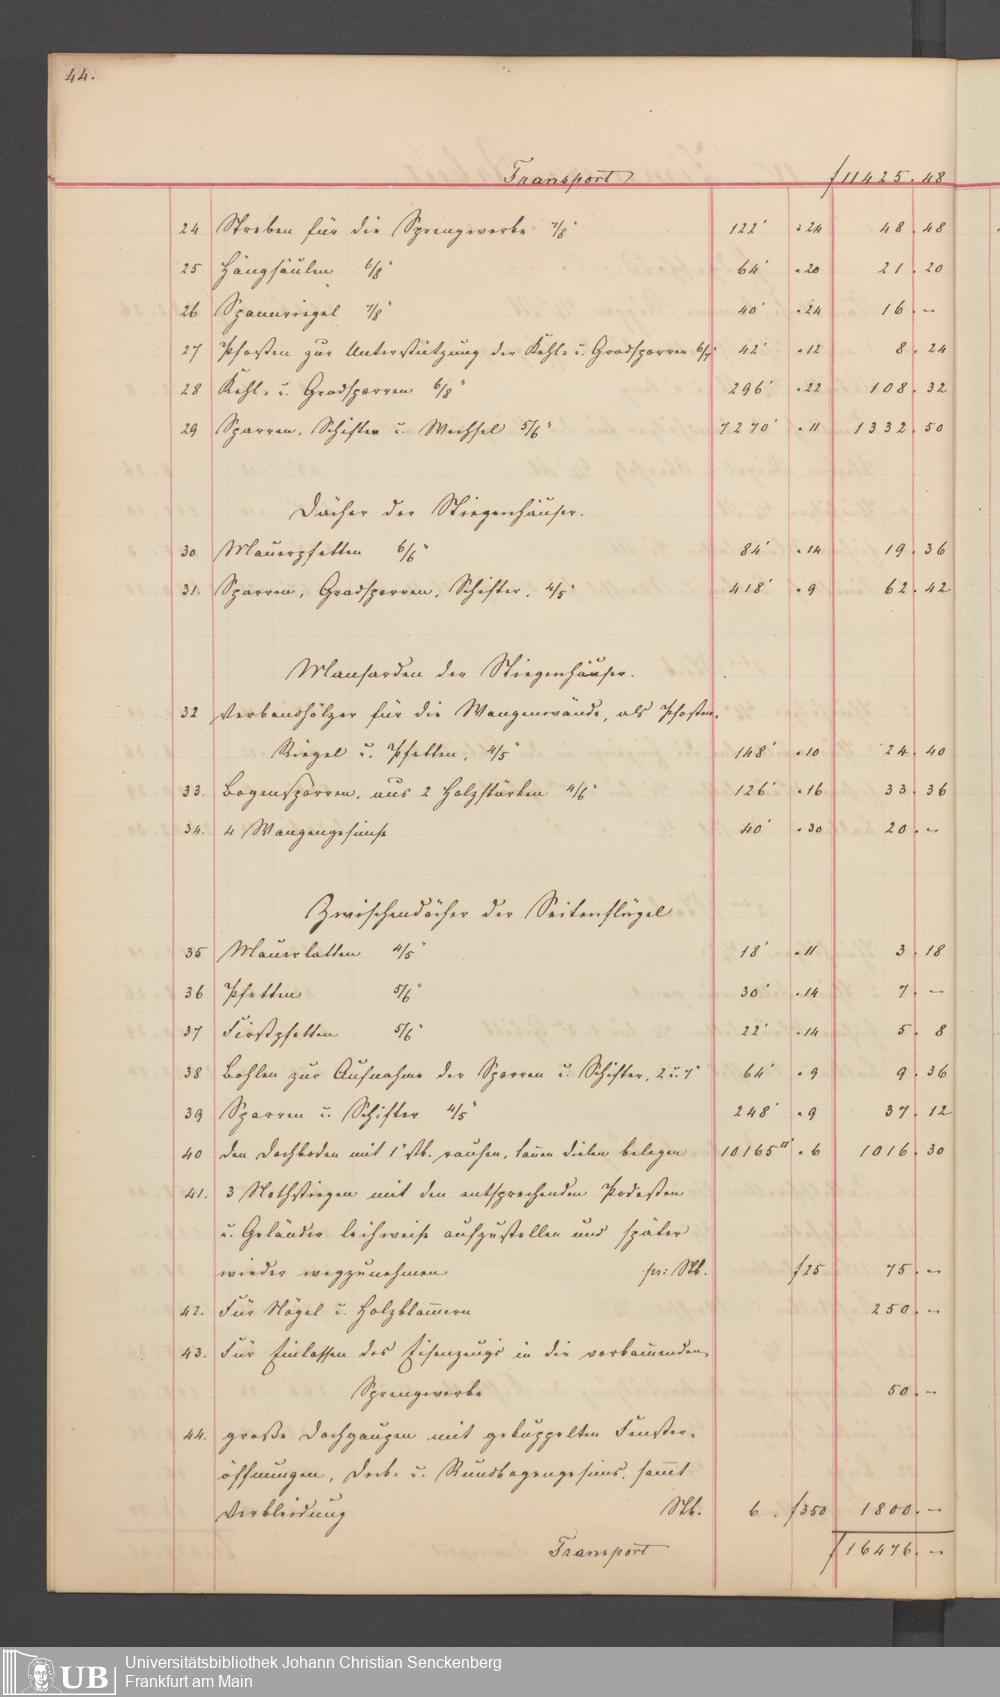 44.
Transport f 11425.48
24 Streben für die Sprengwerke 7/8" 122' " 24 48.48
25 Hängsäulen 6/8" 64' " 20 21.20
26 Spannriegel 7/8" 40' " 24 16.–
27 Pfosten zur Unterstützung der Kehl- u. Gradsparren 6/7" 42' " 12 8.24
28 Kehl- u. Gradsparren 6/8" 296' " 22 108.32
29 Sparren, Schifter u. Wechsel 5/6" 7270' " 11 1332.50
Dächer der Stiegenhäuser.
30 Mauerpfetten 6/6" 84' " 14 19.36
31. Sparren, Gradsparren, Schifter, 4/5" 418' " 9 62.42
Mansarden der Stiegenhäuser.
32 Verbandhölzer für die Wangenwände, als Pfosten,
Riegel u. Pfetten, 4/5" 148' " 10 24.40
33. Bogensparren, aus 2 Holzstärken 4/6" 126' " 16 33.36
34. 4 Wangengesimse 40' " 30 20.–
Zwischendächer der Seitenflügel
35 Mauerlatten 4/5" 18' " 11 3.18
36 Pfetten 5/6" 30' " 14 7.–
37 Firstpfetten 5/6" 22' " 14 5.8
38 Bohlen zur Aufnahme der Sparren u. Schifter, 2 u. 7" 64' " 9 9.36
39 Sparren u. Schifter 4/5" 248' " 9 37.12
40 den Dachboden mit 1" stk. rauhen, tannen Dielen belegen 10165 " 6 1016.30
41. 3 Nothstiegen mit den entsprechenden Podesten
u. Geländer leihweise aufzustellen und später
wieder wegzunehmen pr: Stk. f 25 75.–
42. Für Nägel u. Holzklam̅ern 250.–
43. Für Einlassen des Eisenzeugs in die vorkom̅enden
Sprengwerke 50.–
44. große Dachgaupen mit gekuppelten Fenster-
öffnungen, Deck- u. Rundbogengesims, sam̅t
Verkleidung Stk. 6. f 350 1800.–
Transport f 16476.–
UB Universitätsbibliothek Johann Christian Senckenberg
Frankfurt am Main